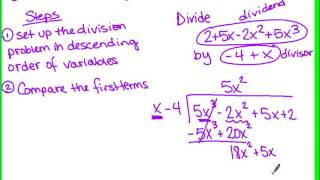 Steps
① set up the division
problem in descending
order of variables
② Compare the first terms
Divide dividend
2+5x-2x²+5x³
by -4+x divisor
5x²
x-4 5x³-2x²+5x+2
-5x³+20x²
18x²+5x